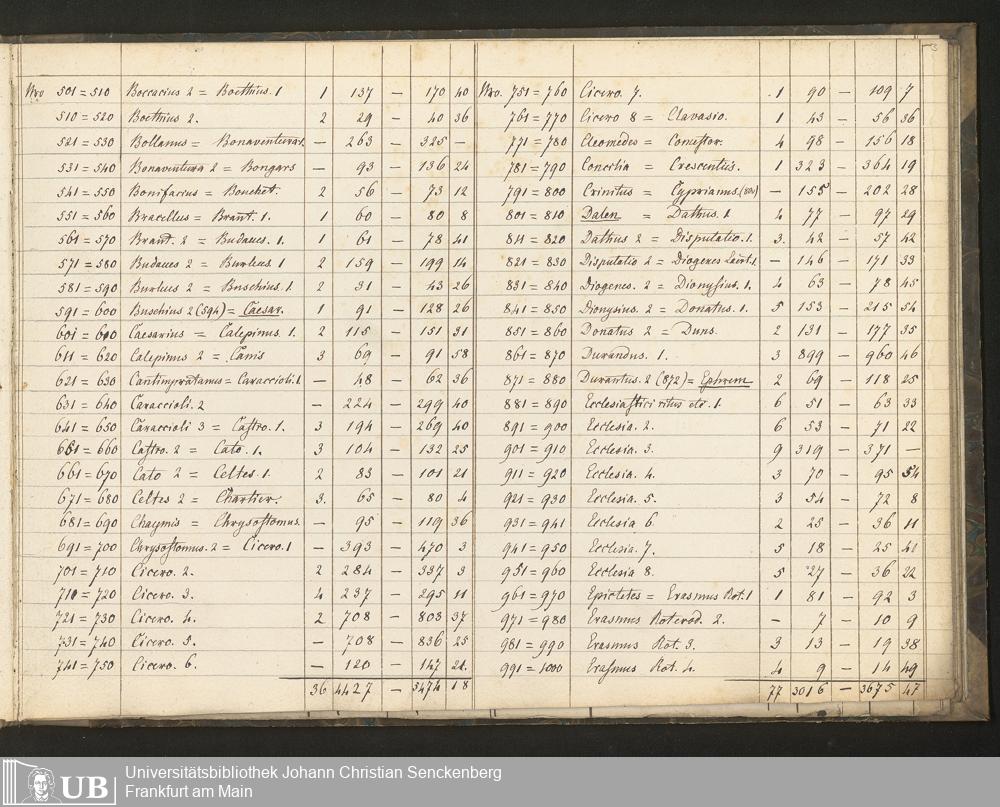 Nro 501=510 Boccacius 2 = Boethius. 1 1 137 — 170 40
510=520 Boethius 2. 2 29 — 40 36
521=530 Bollanus = Bonaventura1. — 263 — 325 —
531=540 Bonaventura 2 = Bongars — 93 — 136 24
541=550 Bonifacius = Bouchet. 2 56 — 73 12
551=560 Bracellus = Brant. 1. 1 60 — 80 8
561=570 Brant. 2 = Budaeus. 1. 1 61 — 78 41
571=580 Budaeus 2 = Burleus 1 2 159 — 199 14
581=590 Burleus 2 = Buschius. 1. 2 31 — 43 26
591=600 Buschius 2 (594) = Caesar. 1 91 — 128 26
601=610 Caesarius = Calepinus. 1. 2 115 — 151 31
611=620 Calepinus 2 = Canis 3 69 — 91 58
621=630 Cantimpratanus = Caraccioli. 1. — 48 — 62 36
631=640 Caraccioli. 2 — 224 — 299 40
641=650 Caraccioli 3 = Castro. 1. 3 194 — 269 40
651=660 Castro. 2 = Cato. 1. 3 104 — 132 25
661=670 Cato 2 = Celtes. 1 2 83 — 101 21
671=680 Celtes 2 = Chartier. 3. 65 — 80 4
681=690 Chaymis = Chrysostomus. — 95 — 119 36
691=700 Chrysostomus. 2 = Cicero. 1 — 393 — 470 3
701=710 Cicero. 2. 2 284 — 337 3
710=720 Cicero. 3. 4 237 — 295 11
721=730 Cicero. 4. 2 708 — 803 37
731=740 Cicero. 5. — 708 — 836 25
741=750 Cicero. 6. — 120 — 147 21.
36 4427 — 5474 18
Nro. 751=760 Cicero. 7. 1 90 — 109 7
761=770 Cicero 8 = Clavasio. 1 43 — 56 36
771=780 Cleomedes = Comestor. 4 98 — 156 18
781=790 Concilia = Crescentiis. 1 323 — 364 19
791=800 Crinitus = Cyprianus. (800) — 155 — 202 28
801=810 Dalen = Dathus. 1 4 77 — 97 29
811=820 Dathus 2 = Disputatio. 1. 3. 42 — 57 42
821=830 Disputatio 2 = Diogenes Laert. 1 — 146 — 171 33
831=840 Diogenes. 2 = Dionysius. 1. 4 63 — 78 45
841=850 Dionysius. 2 = Donatus. 1. 5 153 — 215 54
851=860 Donatus 2 = Duns. 2 131 — 177 35
861=870 Durandus. 1. 3 899 — 960 46
871=880 Durantus. 2 (872) = Ephrem 2 69 — 118 25
881=890 Ecclesiastici ritus etc. 1. 6 51 — 63 33
891=900 Ecclesia. 2. 6 53 — 71 22
901=910 Ecclesia. 3. 9 319 — 371 —
911=920 Ecclesia. 4. 3 70 — 95 54
921=930 Ecclesia. 5. 3 54 — 72 8
931=941 Ecclesia 6. 2 25 — 36 11
941=950 Ecclesia. 7. 5 18 — 25 41
951=960 Ecclesia 8. 5 27 — 36 22
961=970 Epictetes = Erasmus Rot. 1 1 81 — 92 3
971=980 Erasmus Roterod. 2. — 7 — 10 9
981=990 Erasmus Rot. 3. 3 13 — 19 38
991=1000 Erasmus Rot. 4. 4 9 — 14 49
77 3016 — 3675 47
UB Universitätsbibliothek Johann Christian Senckenberg
Frankfurt am Main